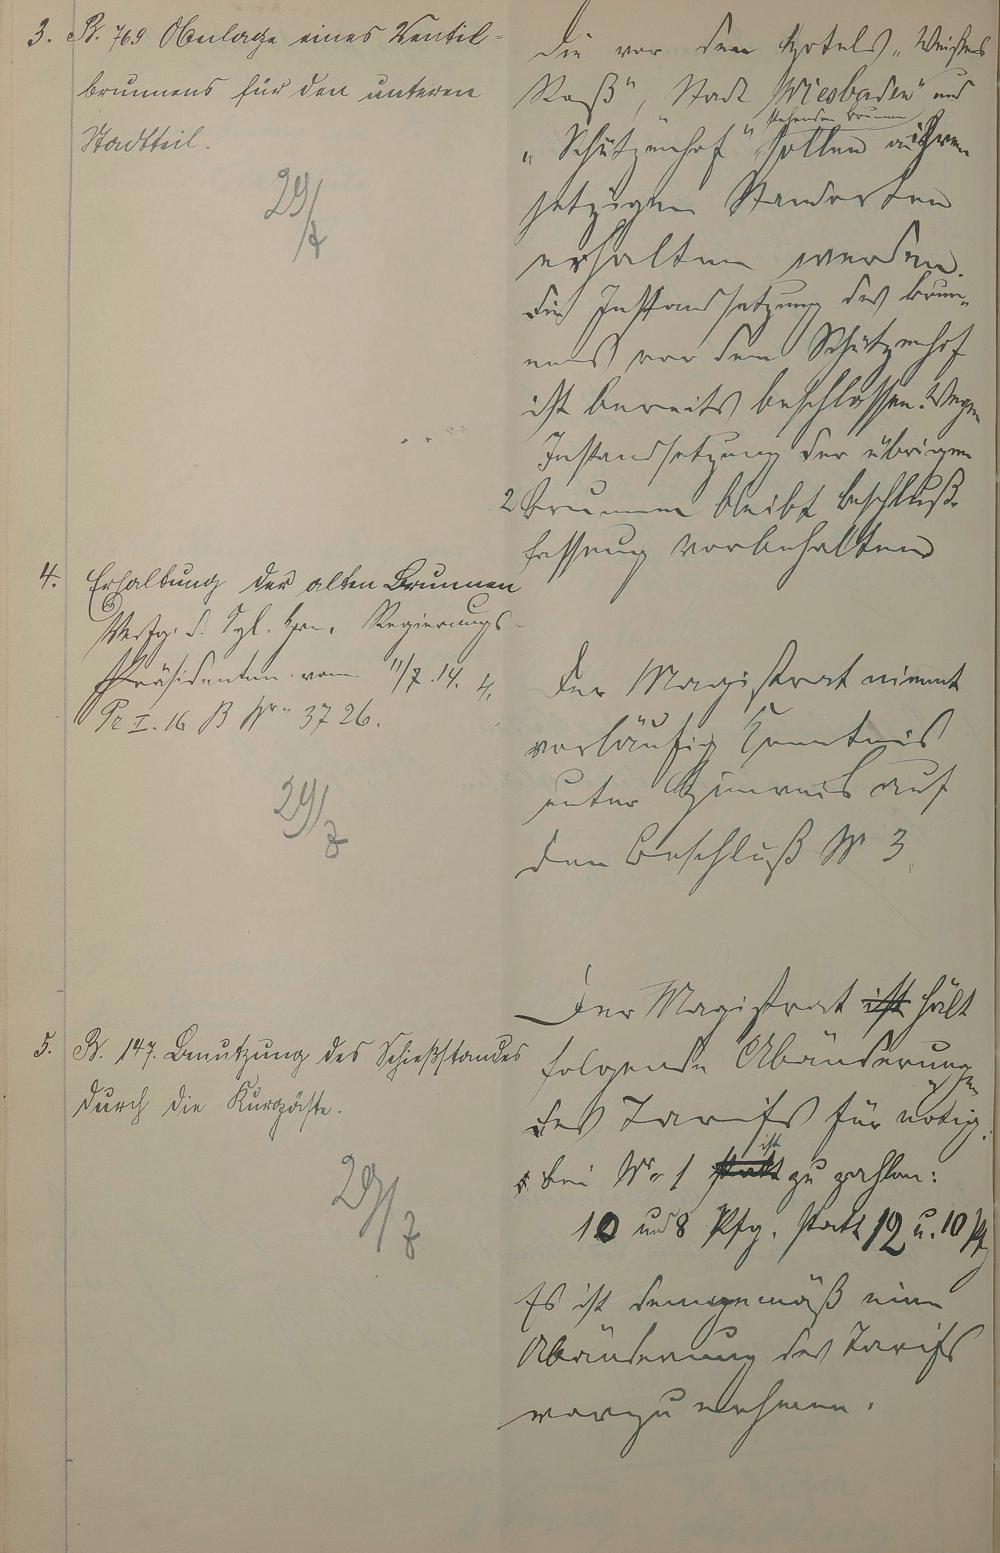 3. B. 769 Anlage eines Ventil-
brunnens für den unteren
Stadtteil.
29/7
Die vor den Hotels „Weißes
Roß“, „Stadt Wiesbaden“ und
stehenden Brunnen
„Schützenhof“ sollen an ihren
jetzigen Standorten
erhalten werden.
Die Instandsetzung des Brun-
nens vor dem Schützenhof
ist bereits beschlossen. Wegen
Instandsetzung der übrigen
2 Brunnen bleibt Beschluß-
fassung vorbehalten
4. Erhaltung der alten Brunnen
Verfg. d. Kgl. Hrn. Regierungs-
Präsidenten vom 11/7. 14.
Pr I. 16 B Nr. 3726.
29/7
Der Magistrat nimmt
vorläufig Kenntnis
unter Hinweis auf
den Beschluß Nr 3
5. B. 147. Benutzung des Schießstandes
durch die Kurgäste.
29/7
Der Magistrat ist hält
folgende Abänderungen
des Tarifs für nötig.
ist
bei Nr. 1 statt zu zahlen:
10 und 8 Pfg. statt 12 u. 10 Pfg
Es ist demgemäß eine
Abänderung des Tarifs
vorzunehmen.